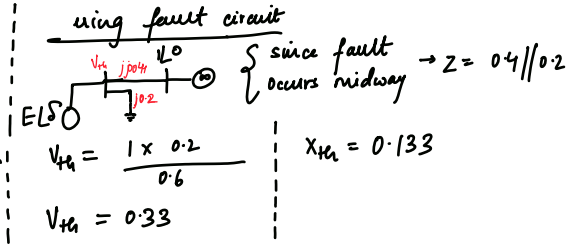 using fault circuit
Vth jj0.4 1∠0 ∞
j0.2
E∠δ
{ since fault occurs midway → Z = 0.4 // 0.2
Vth = 1 x 0.2 / 0.6
Xth = 0.133
Vth = 0.33